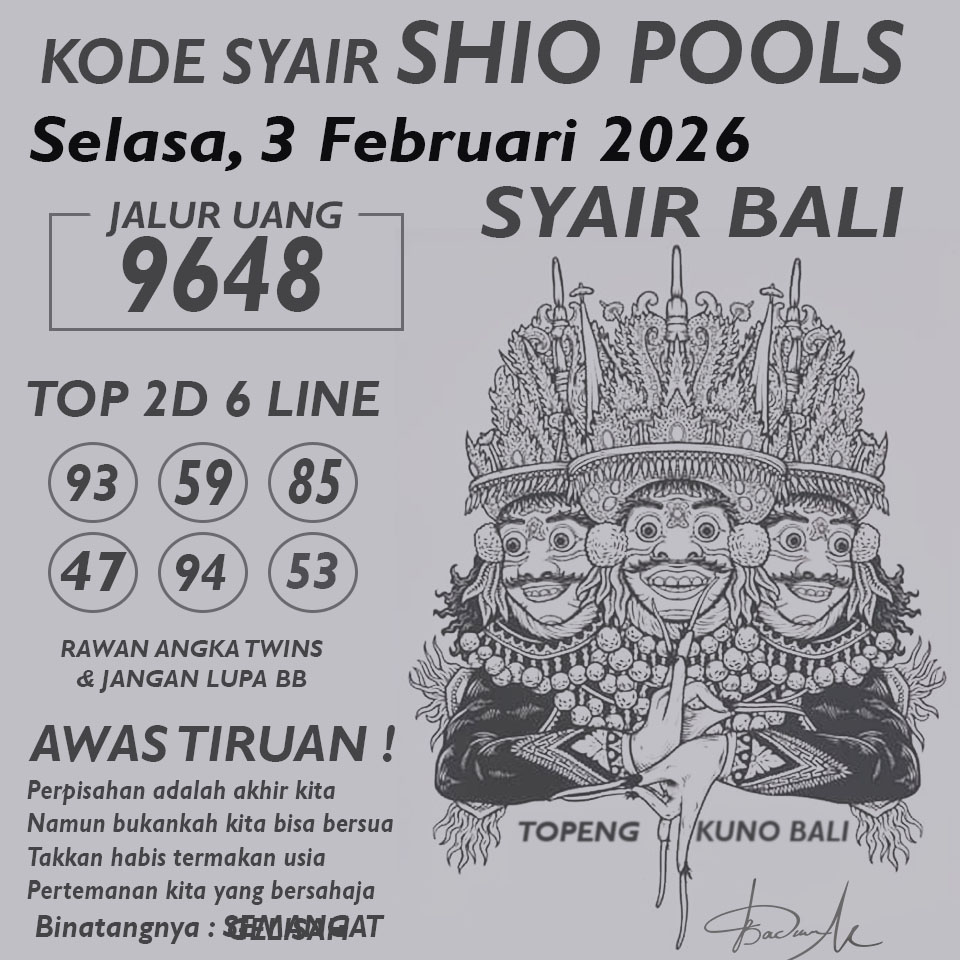 KODE SYAIR SHIO POOLS
Selasa, 3 Februari 2026
SYAIR BALI
JALUR UANG
9648
TOP 2D 6 LINE
93 59 85
47 94 53
RAWAN ANGKA TWINS
& JANGAN LUPA BB
AWAS TIRUAN !
Perpisahan adalah akhir kita
Namun bukankah kita bisa bersua
Takkan habis termakan usia
Pertemanan kita yang bersahaja
Binatangnya :
TOPENG KUNO BALI